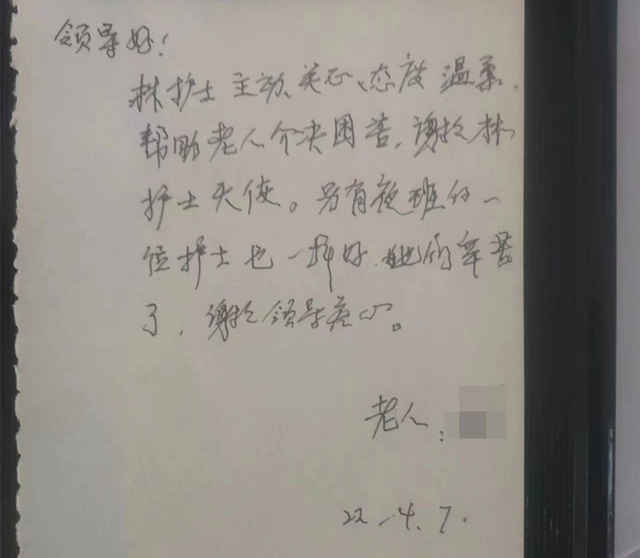 领导好！
林护士主动关心、态度温柔.
帮助老人介决困苦，谢谢林
护士天使。另有夜班的一
位护士也一样好.她们辛苦
了，谢谢领导关心。
老人：
22-4.7.